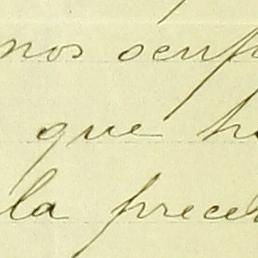 nos ocup
que h
la prece